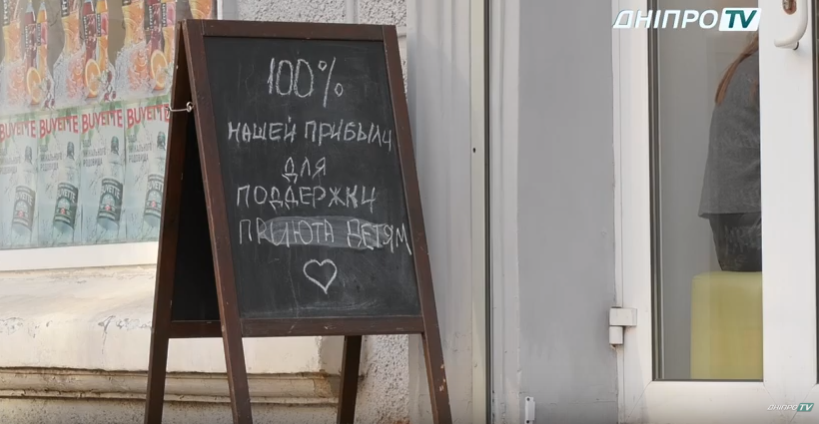 ДНІПРО TV
100%
НАШЕЙ ПРИБЫЛИ
ДЛЯ
ПОДДЕРЖКИ
ПРИЮТА ДЕТЯМ
BUVETTE BUVETTE BUVETTE BUVETTE
ДНІПРО TV